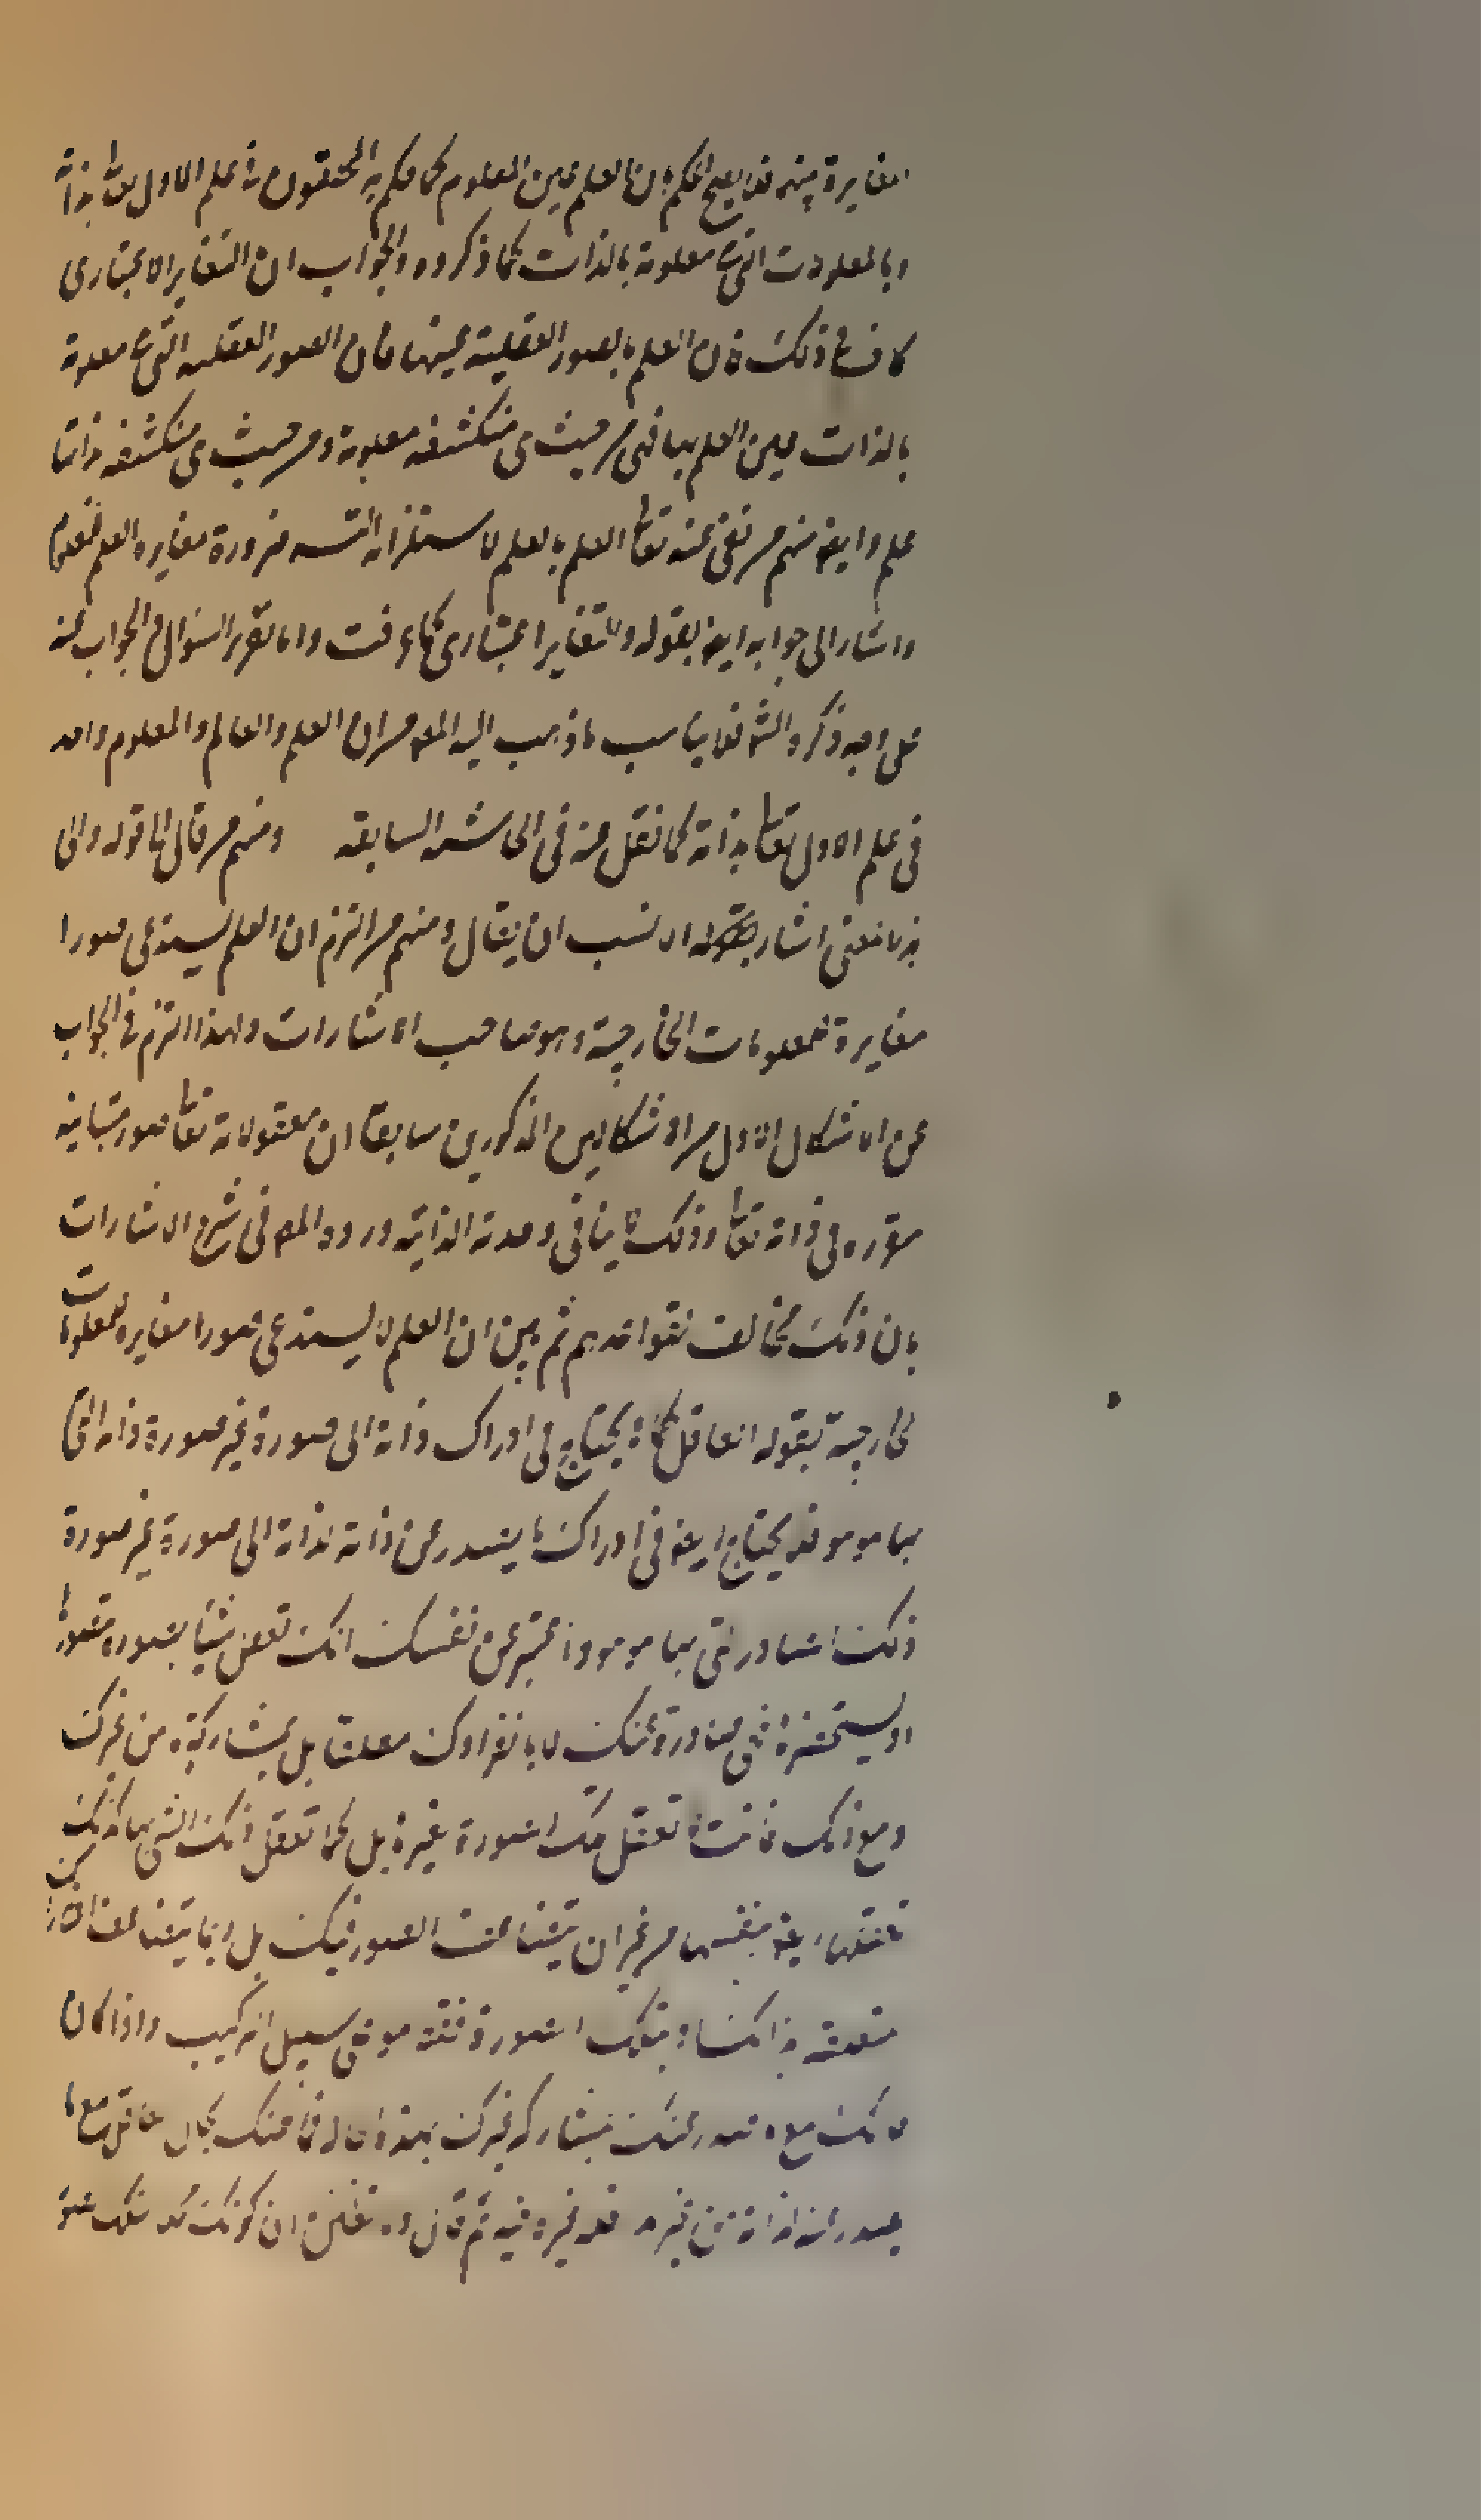 مغايرة منه فلا يصح الحكم بان العلم عين المعلوم كما حكم به المحققون في علم الاول تعا بذاته
وبالمعلومات التي هي معلومة بالذات كما ذكروه والجواب ان التغاير الاعتباري
كاف في ذلك فان العلم بالصور العقلية عينها فان الصور العقليه التي هي معلومة
بالذات عين العلم بها فهي من حيث هي منكشفه معلومة ومن حيث هي منكشفه بذاتها
علم وايضا منهم من نفى عنه تعا العلم بالعلم لاستلزامه التسـ ضرورة مغايره العلم للمعلوم
واشار الى جوابه ايضا بقوله ولا تغاير اعتباري كما عرفت واما تقرير السؤال والجواب عنه
على وجه ذكره الشـ فلا يناسب ما ذهب اليه المصـ من ان العلم والعالم والمعلوم واحد
في علم الاول تعا بذاته كما نقل عنه في الحاشيه السابقه ومنهم من قال الخ قوله والى
هذا المعنى اشار بقوله الانسب ان يقال ومنهم من التزم ان العلم يستدعي صورا
مغايرة للمعلومات الخارجية وهو صاحب الاشارات ولهذا التزم في الجواب
عن الاشكال الاول من الاشكالين المذكورين سابقا ان معقولاته تعا صور متباينه
متقرره في ذاته تعا وذلك لا ينافي وحدته الذاتيه ورده المصـ في شرح الاشارات
بان ذلك مخالف لقواعدهم ثم بين ان العلم لا يستدعي صورا مغايره للمعلومات
الخارجية بقوله العاقل كما لا يحتاج في ادراك ذاته الى صورة غير صورة ذاته التي
بها هو هو فلا يحتاج ايضا في ادراك ما يصدر عن ذاته لذاته الى صورة غير صورة
ذلك الصادر التي بها هو هو واعتبر عن نفسك انك تعقل شيئا بصورة تتصورها
او تستحضرها فهي صادرة عنك لا بانفرادك مطلقا بل بمشاركة ما من غيرك
ومع ذلك فانت لا تعقل تلك الصورة بغيرها بل كما تعقل ذلك الشي بها كذلك
تعقلها ايضا بنفسها من غير ان يتضاعف الصور فيك بل انما يتضاعف اعتباراتك
المتعلقه بذاتك او بتلك الصورة فقط او على سبيل التركيب واذا كان
حالك مع ما يصدر عنك بمشاركه غيرك بهذه الحال فما ظنك بحال العاقل مع ما
يصدر عنه لذاته من غير مداخله غيره فيه ثم قال ولا تظنن ان كونك محلا لتلك الصورة